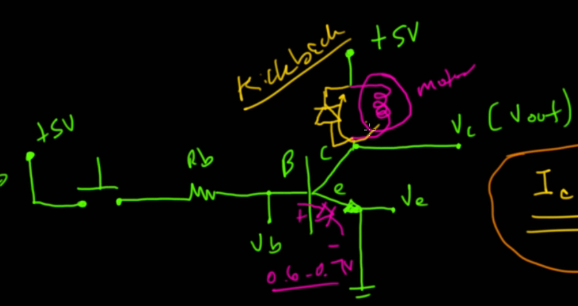 Kickback
+5V
motor
+5V
Rb
B
C
Vc (Vout)
e
Ve
Vb
+
-
0.6-0.7V
Ic